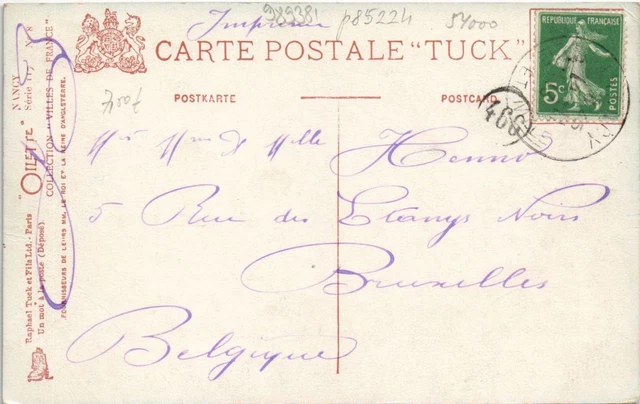 Imprimé 38938 p85224 54000
CARTE POSTALE "TUCK"
POSTKARTE
POSTCARD
REPUBLIQUE FRANÇAISE
5c POSTES
466
7,00€
NANCY
Série 117 Nº 8
"OILETTE"
COLLECTION "VILLES DE FRANCE"
FOURNISSEURS DE LEURS MM. LE ROI ET LA REINE D'ANGLETERRE.
Raphael Tuck et Fils Ltd.- Paris
Un mot à la poste (Déposé)
Mr Mme & Mlle Henno
5 Rue des Etangs Noirs
Bruxelles
Belgique